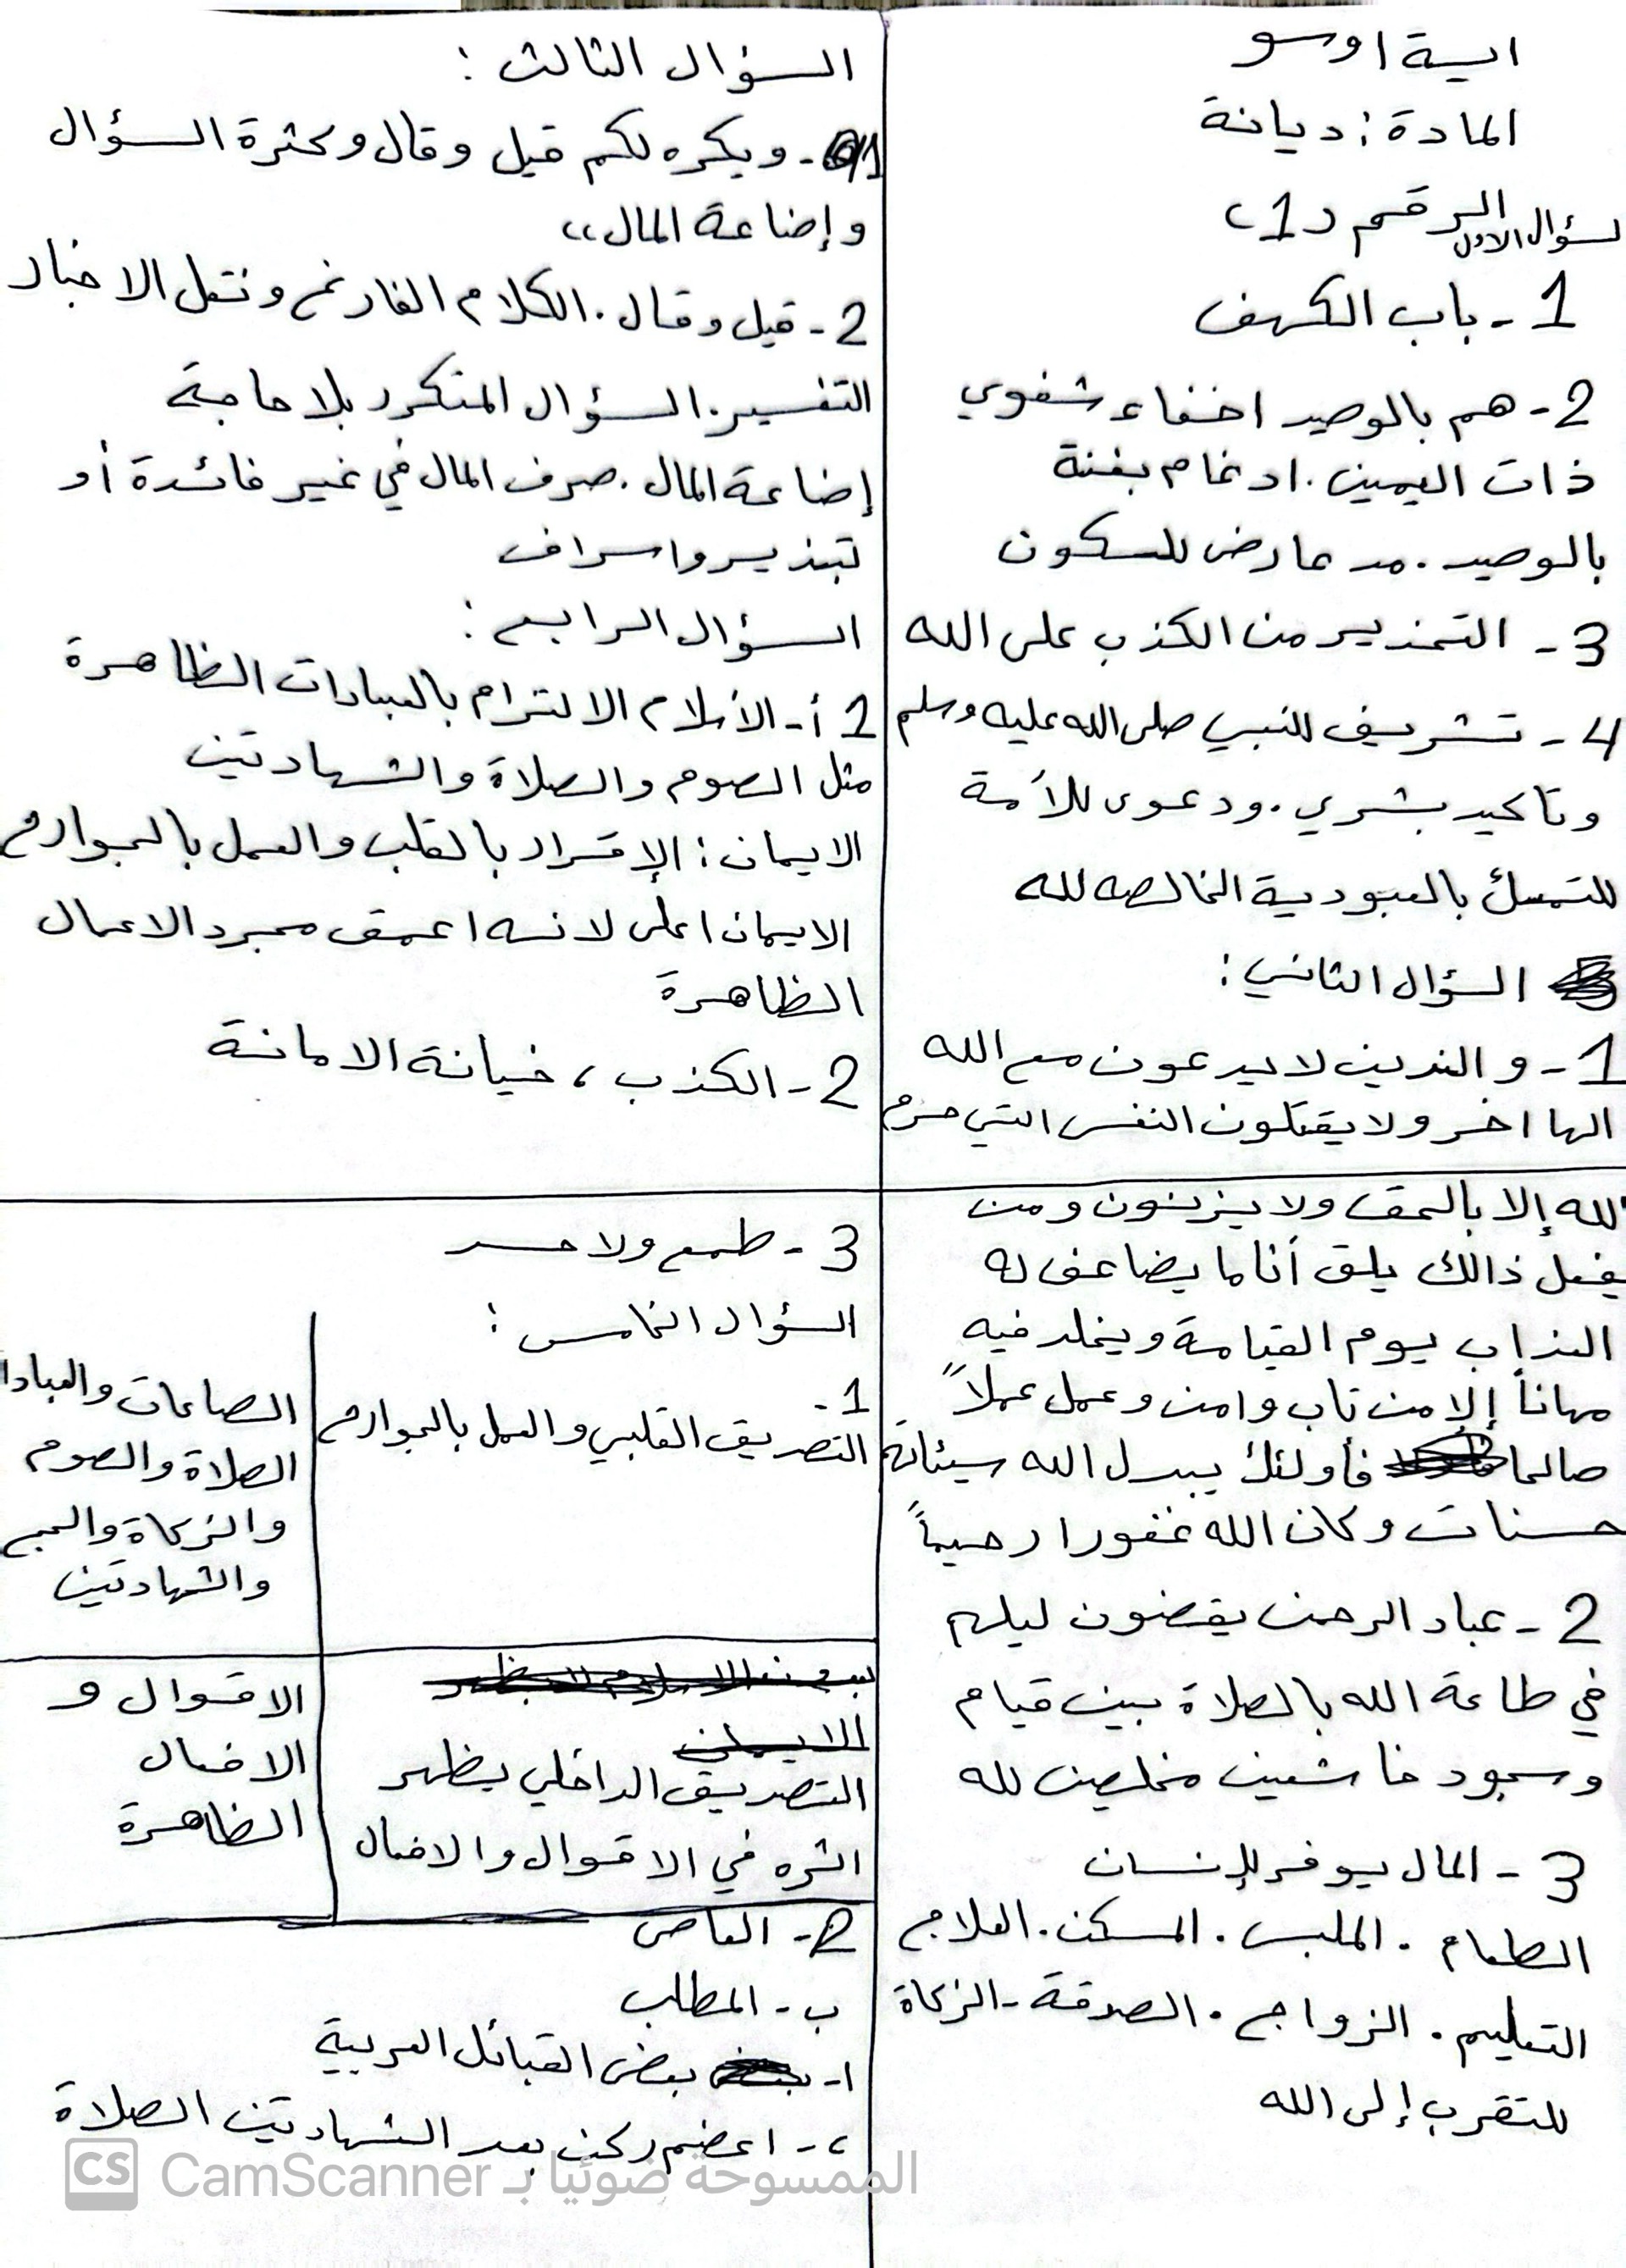 اسية اوسو
المادة : ديانة
السؤال الاول الرقم (1)
1 - باب الكهف
2 - هم بالوصيد اخفاء شفوي
ذات اليمين . ادغام بغنة
بالوصيد . مد عارض للسكون
3 - التحذير من الكذب على الله
4 - تشريف للنبي صلى الله عليه وسلم
وتاكيد بشري . ودعوى للأمة
للتمسك بالعبودية الخالصه لله
السؤال الثاني :
1 - والذين لا يدعون مع الله
الها اخر ولا يقتلون النفس التي حرم
لله إلا بالحق ولا يزنون ومن
يفعل ذالك يلق أثاما يضاعف له
العذاب يوم القيامة ويخلد فيه
مهاناً إلا من تاب وامن وعمل عملاً
صالحا فأولئك يبدل الله سيئاته
حسنات وكان الله غفورا رحيماً
2 - عباد الرحمن يقضون ليلهم
في طاعة الله بالصلاة بين قيام
وسجود خاشعين مخلصين لله
3 - المال يوفر للإنسان
الطعام . الملبس . المسكن . العلاج
التعليم . الزواج . الصدقة - الزكاة
للتقرب إلى الله
السؤال الثالث :
1 - ويكره لكم قيل وقال وكثرة السؤال
وإضاعة المال ،،
2 - قيل وقال . الكلام الفارغ ونقل الاخبار
التفسير . السؤال المتكرر بلا حاجة
إضاعة المال . صرف المال في غير فائدة أو
تبذير واسراف
السؤال الرابع :
1 أ - الأسلام الالتزام بالعبادات الظاهرة
مثل الصوم والصلاة والشهادتين
الايمان : الإقرار بالقلب والعمل بالجوارح
الايمان اعلى لانه اعمق مجرد الاعمال
الظاهرة
2 - الكذب ، خيانة الامانة
3 - طمع ولا حسد
السؤال الخامس :
1 -
التصديق القلبي والعمل بالجوارح
الطاعات والعبادا
الصلاة والصوم
والزكاة والحج
والشهادتين
التصديق الداخلي يظهر
اثره في الاقوال والافعال
الاقوال و
الافعال
الظاهرة
2 - العاص
ب - المطلب
ا - بعض القبائل العربية
، - اعضم ركن بعد الشهادتين الصلاة
CS CamScanner الممسوحة ضوئيا بـ